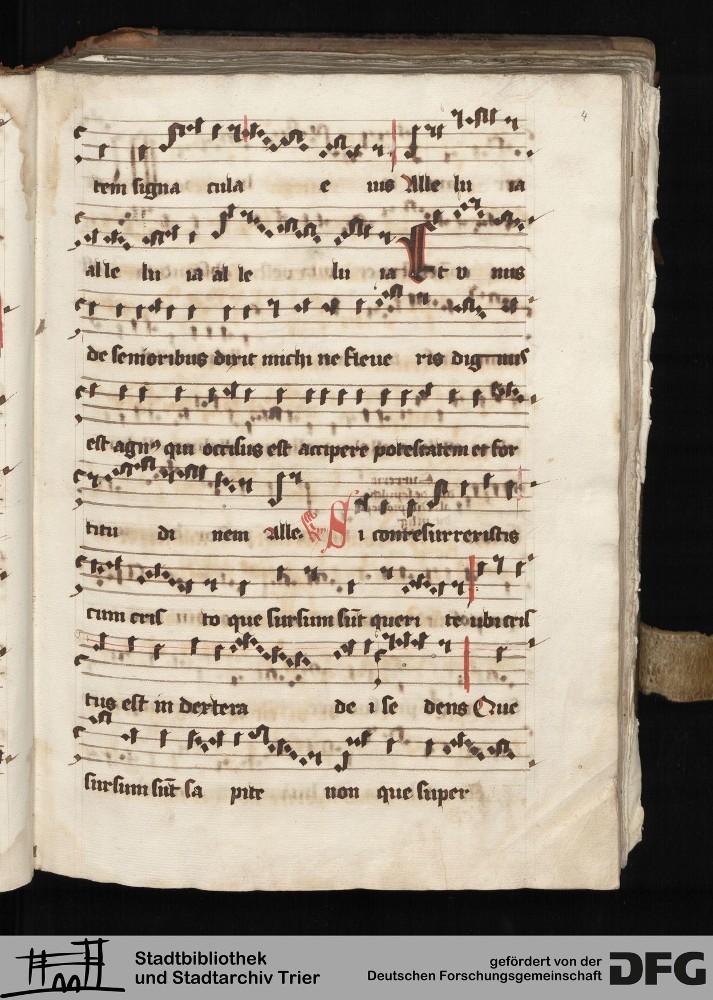 4
tem signa cula e ius Alle lu ia
alle lu ia al le lu ia Et v nus
de senioribus dixit michi ne fleue ris dignus
est agnꝰ qui occisus est accipere potestatem et for
titu di nem Alle. S i conresurrexistis
cum cris to que sursum sūt queri te ubi cris
tus est in dextera de i se dens Que
sursum sūt sa pite non que super
Stadtbibliothek
und Stadtarchiv Trier
gefördert von der
Deutschen Forschungsgemeinschaft
DFG